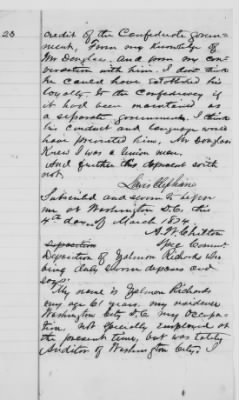 23
credit of the Confederate govern-
ment, From my knowledge of
Mr Douglas. And from my con-
versation with him. I dont think
he could have established his
loyalty to the Confederacy if
it had been maintained as
a separate government. I think
his conduct and language would
have prevented him, Mr Douglas
Knew I was a Union man.
And further this deponent saith
not.
Subscribed and sworn to before
me at Washington D.C. this
4th day of March 1874
A. W. Chilton
Spec Commr.
Deposition
Deposition of Zalmon Richards who
being duly sworn deposes and
says
My name is Zalmon Richards
my age 61 years my residence
Washington City D.C. my occupa-
tion not specially employed at
the present time, but was lately
Auditor of Washington City, I